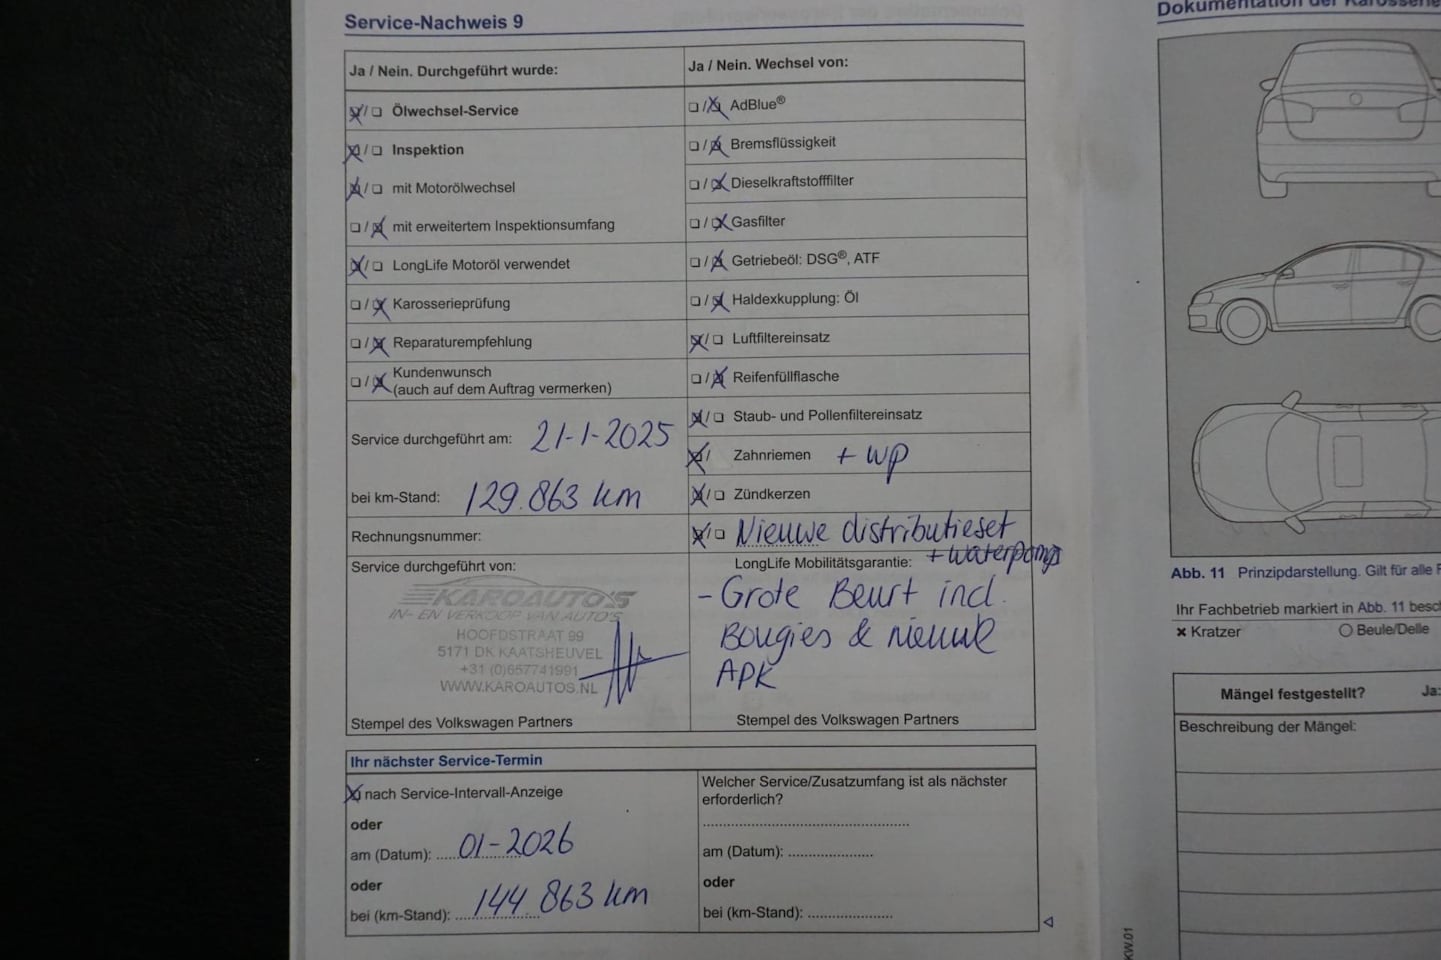 Service-Nachweis 9
Ja / Nein. Durchgeführt wurde:
☒/☐ Ölwechsel-Service
☒/☐ Inspektion
☒/☐ mit Motorölwechsel
☐/☒ mit erweitertem Inspektionsumfang
☒/☐ LongLife Motoröl verwendet
☐/☒ Karosserieprüfung
☐/☒ Reparaturempfehlung
☐/☒ Kundenwunsch
(auch auf dem Auftrag vermerken)
Service durchgeführt am: 21-1-2025
bei km-Stand: 129.863 km
Rechnungsnummer:
Service durchgeführt von:
KAROAUTO'S
IN- EN VERKOOP VAN AUTO'S
HOOFDSTRAAT 99
5171 DK KAATSHEUVEL
+31 (0)657741991
WWW.KAROAUTOS.NL
Stempel des Volkswagen Partners
Ja / Nein. Wechsel von:
☐/☒ AdBlue®
☐/☒ Bremsflüssigkeit
☐/☒ Dieselkraftstofffilter
☐/☒ Gasfilter
☐/☒ Getriebeöl: DSG®, ATF
☐/☒ Haldexkupplung: Öl
☒/☐ Luftfiltereinsatz
☐/☒ Reifenfüllflasche
☒/☐ Staub- und Pollenfiltereinsatz
☒/ Zahnriemen + WP
☒/☐ Zündkerzen
☒/☐ Nieuwe distributieset
LongLife Mobilitätsgarantie: + waterpomp
- Grote Beurt incl.
Bougies & nieuwe
APK
Stempel des Volkswagen Partners
Ihr nächster Service-Termin
☒ nach Service-Intervall-Anzeige
oder
am (Datum): 01-2026
oder
bei (km-Stand): 144 863 km
Welcher Service/Zusatzumfang ist als nächster
erforderlich?
am (Datum):
oder
bei (km-Stand):
Dokumentation der
Abb. 11 Prinzipdarstellung. Gilt für alle
Ihr Fachbetrieb markiert in Abb. 11
× Kratzer ○ Beule/Delle
Mängel festgestellt? Ja:
Beschreibung der Mängel:
KW.01